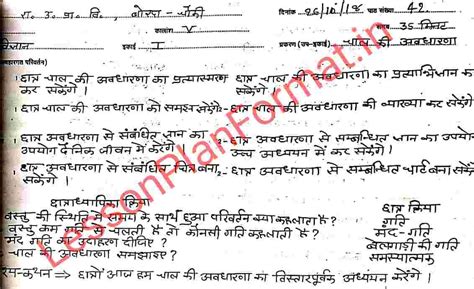 रा. उ. मा. वि., चौकी दिनांक 26/10/18 पाठ संख्या 42
कालांश V 35 मिनट
विज्ञान इकाई I प्रकरण (उप-इकाई)- चाल की अवधारणा
परिवर्तन)
छात्र चाल की अवधारणा का प्रत्यास्मरण कर सकेंगे। छात्र चाल की अवधारणा का प्रत्याभिज्ञान कर सकेंगे।
छात्र चाल की अवधारणा को समझ सकेंगे- छात्र चाल की अवधारणा की व्याख्या कर सकेंगे
छात्र अवधारणा से संबंधित ज्ञान का उपयोग दैनिक जीवन में करेंगे। 2- छात्र अवधारणा से सम्बन्धित ज्ञान का उपयोग उच्च अध्ययन में कर सकेंगे।
छात्र अवधारणा से संबंधित चित्र बना सकेंगे। 2- छात्र अवधारणा से सम्बन्धित चार्ट बना सकेंगे।
छात्राध्यापिका क्रिया छात्र क्रिया
वस्तु की स्थिति में समय के साथ हुआ परिवर्तन क्या कहलाता है? गति
वस्तु कम गति से चलती है तो कौनसी गति कहलाती है? मंद-गति
मंद गति का उदाहरण दीजिए? बैलगाड़ी की गति
चाल की अवधारणा समझाइए? समस्यात्मक
कथन ⇒ छात्रों आज हम चाल की अवधारणा का विस्तारपूर्वक अध्ययन करेंगे।
LessonPlanFormat.in